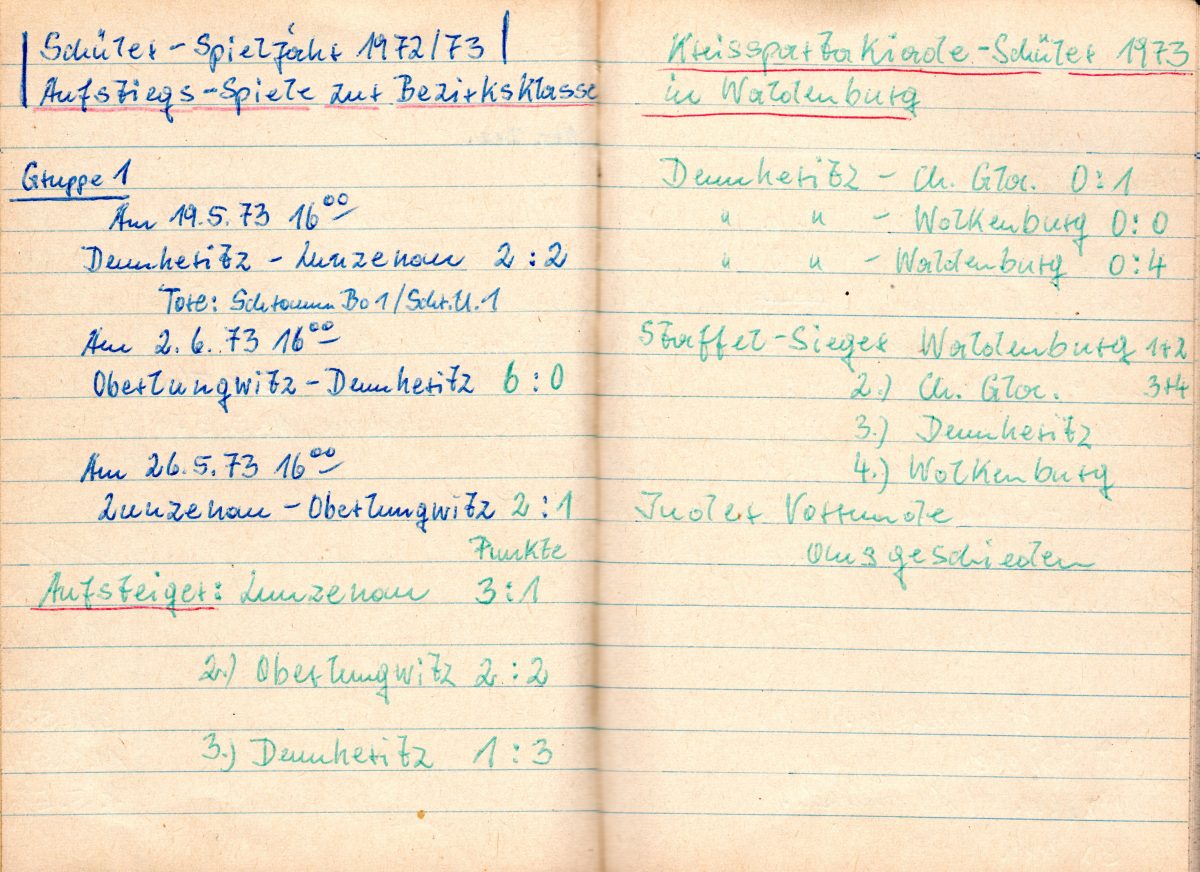 Schüler-Spieljahr 1972/73
Aufstiegs-Spiele zur Bezirksklasse
Gruppe 1
Am 19.5.73 16⁰⁰
Dennheritz - Lunzenau 2:2
Tore: Schramm Bo 1/Schr.U.1
Am 2.6.73 16⁰⁰
Oberlungwitz-Dennheritz 6:0
Am 26.5.73 16⁰⁰
Lunzenau - Oberlungwitz 2:1
Punkte
Aufsteiger: Lunzenau 3:1
2.) Oberlungwitz 2:2
3.) Dennheritz 1:3
Kreisspartakiade-Schüler 1973
in Waldenburg
Dennheritz - Ch. Gla. 0:1
" " - Wolkenburg 0:0
" " - Waldenburg 0:4
Staffel-Sieger Waldenburg 1+2
2.) Ch. Gla. 3+4
3.) Dennheritz
4.) Wolkenburg
In der Vorrunde
ausgeschieden